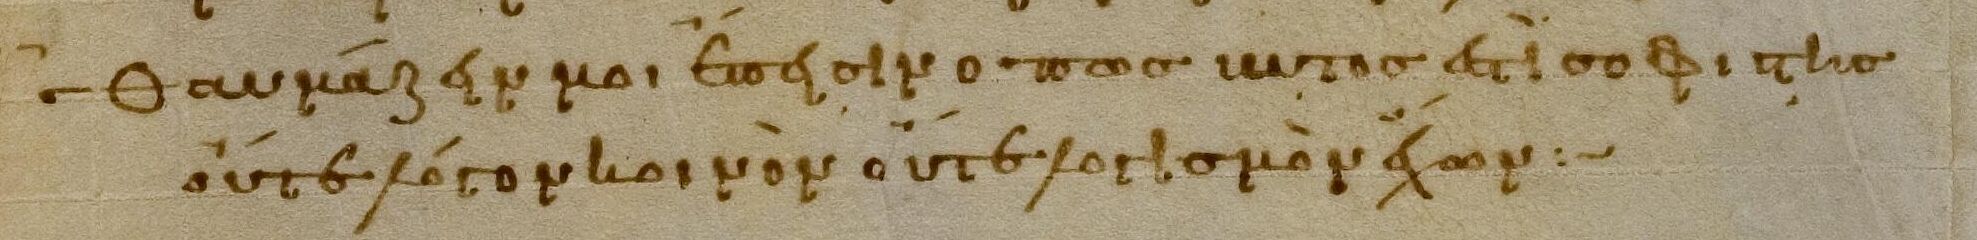 Θαυμάζειν μοι ἔπεισιν ὁπως βυτος ἐστὶ σοφιστης
οὔτε λόγον κοινὸν οὔτε λογισμὸν ἔχων:~